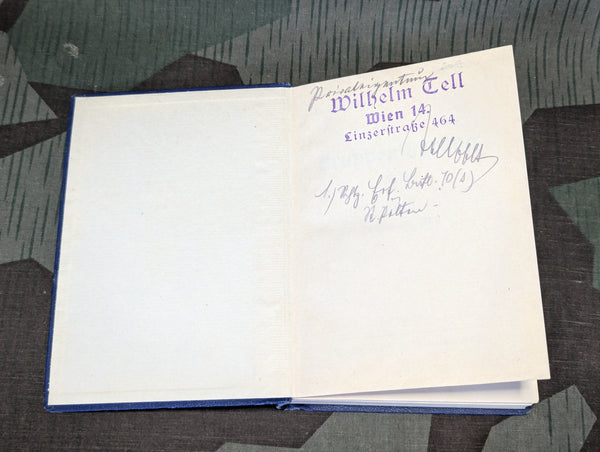 Privateigentum
Wilhelm Tell
Wien 14.
Linzerstraße 464
1./ Erf. 70 (
St. Pölten -